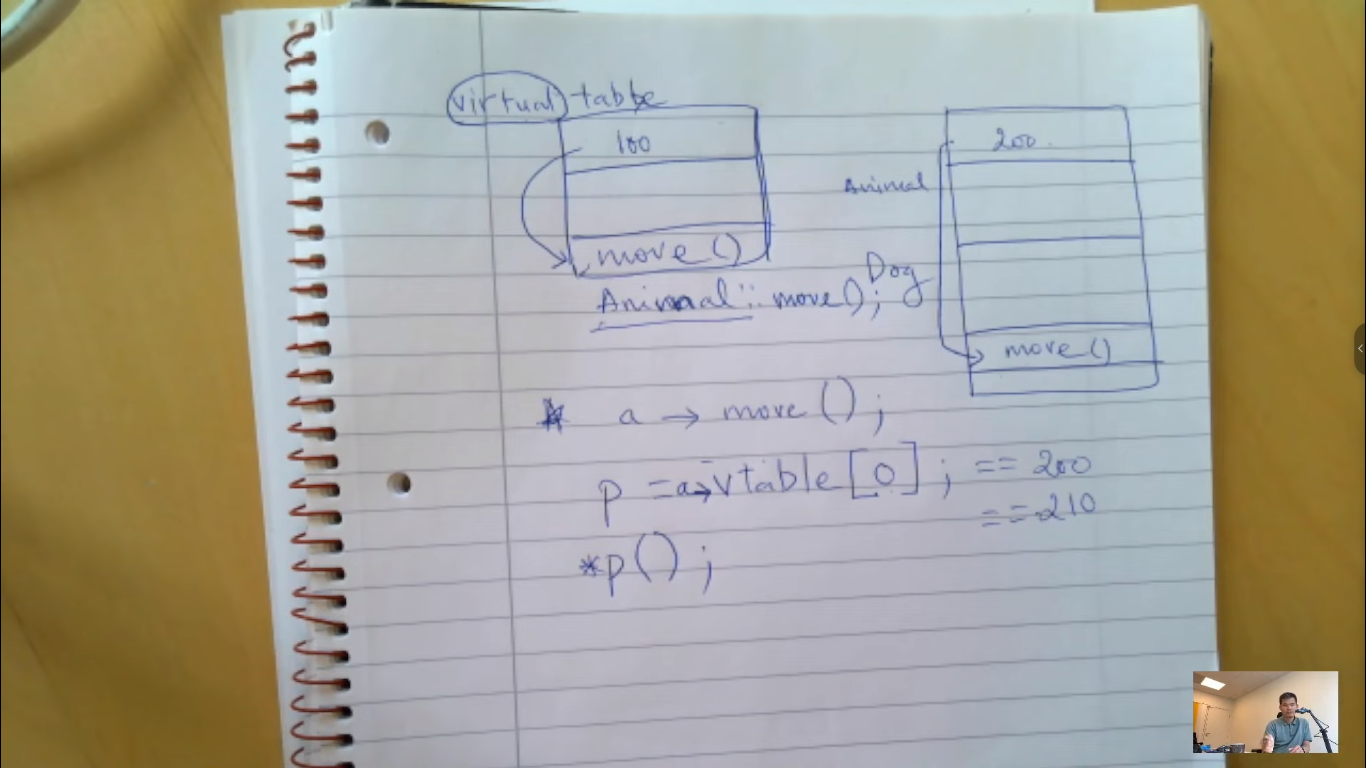 virtual table
100
move ()
Animal :: move();
200
Animal
Dog
move ()
* a → move ();
p = a→vtable[0]; == 200
== 210
*p();